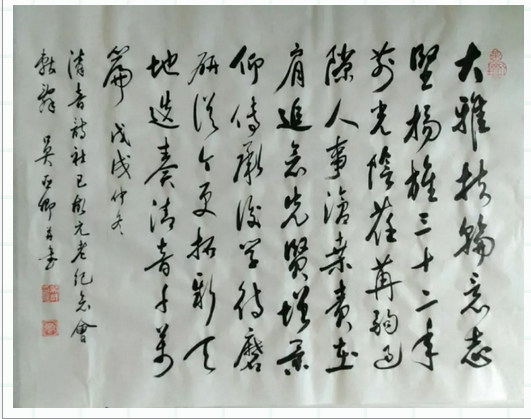 大雅扶輪意志
堅揚旌三十二年
前光陰荏苒駒過
隙人事滄桑責在
肩追念先賢增景
仰傳承後學待磨
研從今更拓新天
地迭奏清音千萬
篇 戊戌仲冬
清音詩社已故元老紀念會
吳亞卿并書